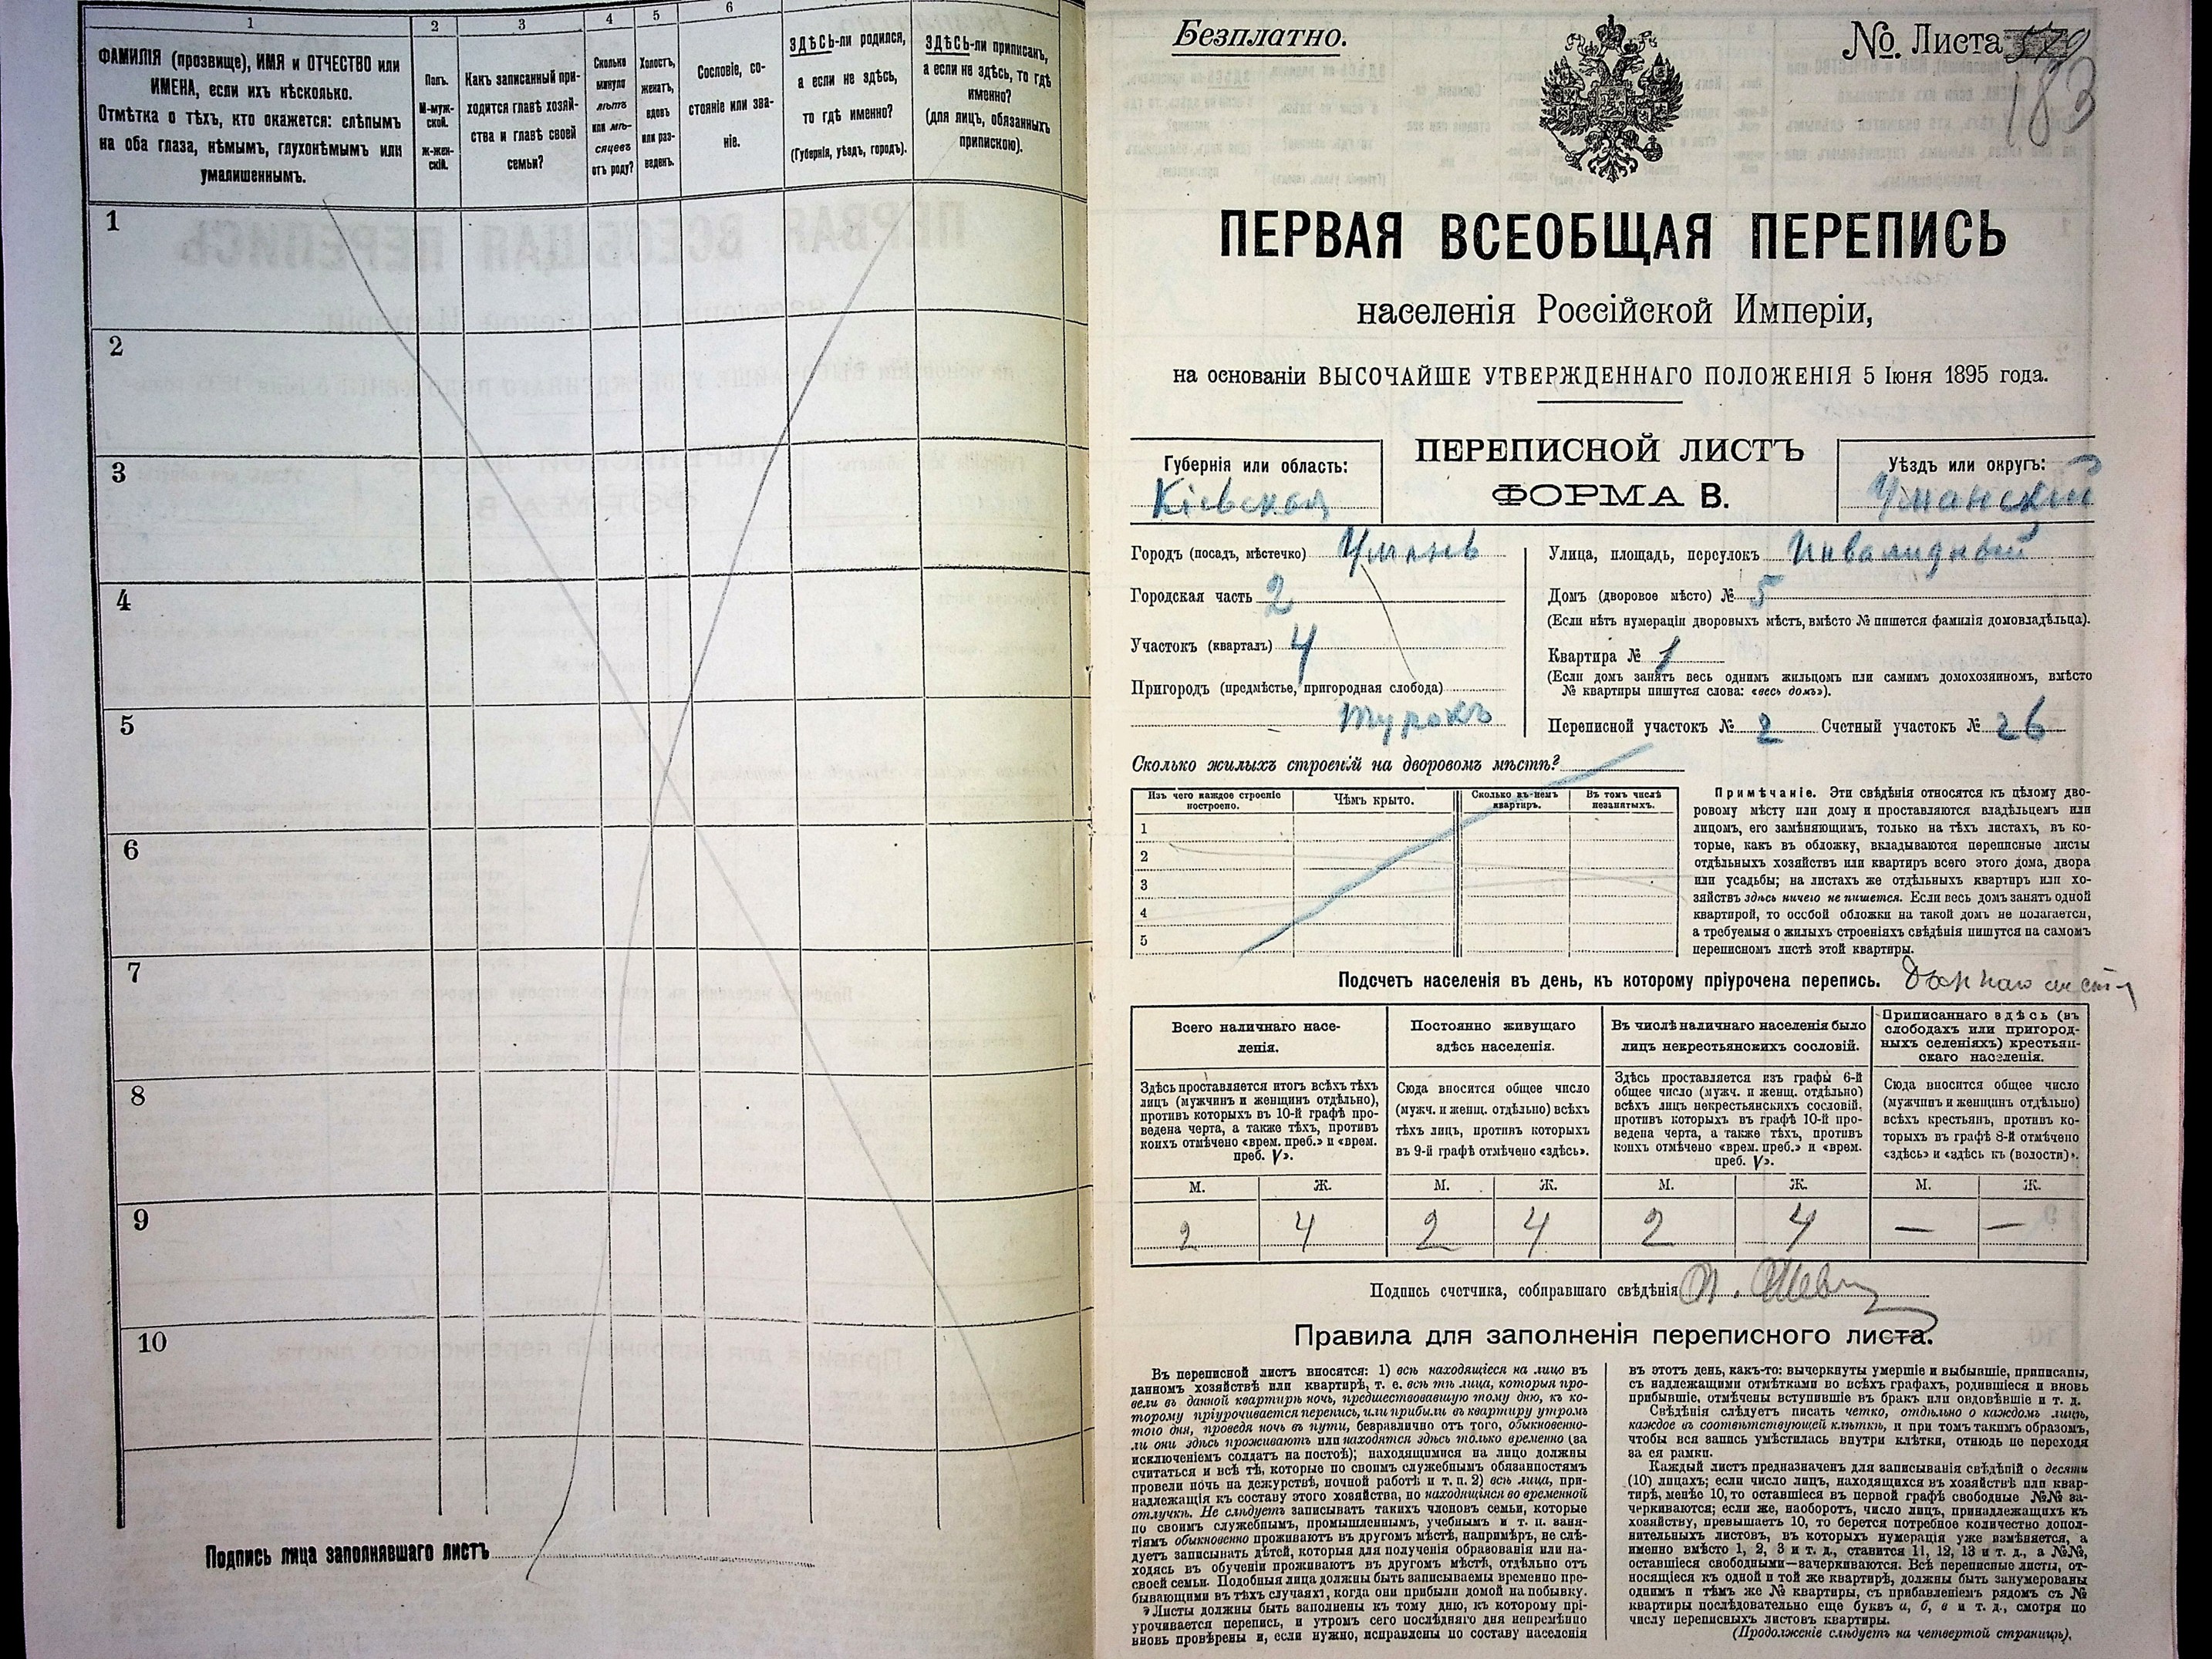 1
2
3
4
5
6
ФАМИЛІЯ (прозвище), ИМЯ и ОТЧЕСТВО или
ИМЕНА, если ихъ нѣсколько.
Отмѣтка о тѣхъ, кто окажется: слѣпымъ
на оба глаза, нѣмымъ, глухонѣмымъ или
умалишеннымъ.
Полъ.
М-муж-
ской.
ж-жен-
скій.
Какъ записанный при-
ходится главѣ хозяй-
ства и главѣ своей
семьи?
Сколько
минуло
лѣтъ
или мѣ-
сяцевъ
отъ роду?
Холостъ,
женатъ,
вдовъ
или раз-
веденъ.
Сословіе, со-
стояніе или зва-
ніе.
ЗДѢСЬ-ли родился,
а если не здѣсь,
то гдѣ именно?
(Губернія, уѣздъ, городъ).
ЗДѢСЬ-ли приписанъ,
а если не здѣсь, то гдѣ
именно?
(для лицъ, обязанныхъ
припискою).
1
2
3
4
5
6
7
8
9
10
Подпись лица заполнявшаго листъ
Безплатно.
№. Листа 579
183
ПЕРВАЯ ВСЕОБЩАЯ ПЕРЕПИСЬ
населенія Россійской Имперіи,
на основаніи ВЫСОЧАЙШЕ УТВЕРЖДЕННАГО ПОЛОЖЕНІЯ 5 Іюня 1895 года.
Губернія или область:
Кіевская
ПЕРЕПИСНОЙ ЛИСТЪ
ФОРМА В.
Уѣздъ или округъ:
Уманскій
Городъ (посадъ, мѣстечко) Умань
Городская часть 2
Участокъ (кварталъ) 4
Пригородъ (предмѣстье, пригородная слобода)
Турокъ
Улица, площадь, переулокъ Инвалидный
Домъ (дворовое мѣсто) № 5
(Если нѣтъ нумераціи дворовыхъ мѣстъ, вмѣсто № пишется фамилія домовладѣльца).
Квартира № 1
(Если домъ занятъ весь однимъ жильцомъ или самимъ домохозяиномъ, вмѣсто
№ квартиры пишутся слова: «весь домъ»).
Переписной участокъ № 2 Счетный участокъ № 26
Сколько жилыхъ строеній на дворовомъ мѣстѣ?
Изъ чего каждое строеніе
построено.
Чѣмъ крыто.
Сколько въ немъ
квартиръ.
Въ томъ числѣ
незанятыхъ.
1
2
3
4
5
Примѣчаніе. Эти свѣдѣнія относятся къ цѣлому дво-
ровому мѣсту или дому и проставляются владѣльцемъ или
лицомъ, его замѣняющимъ, только на тѣхъ листахъ, въ ко-
торые, какъ въ обложку, вкладываются переписные листы
отдѣльныхъ хозяйствъ или квартиръ всего этого дома, двора
или усадьбы; на листахъ же отдѣльныхъ квартиръ или хо-
зяйствъ здѣсь ничего не пишется. Если весь домъ занятъ одной
квартирой, то особой обложки на такой домъ не полагается,
а требуемыя о жилыхъ строеніяхъ свѣдѣнія пишутся на самомъ
переписномъ листѣ этой квартиры.
Подсчетъ населенія въ день, къ которому пріурочена перепись.
Всего наличнаго насе-
ленія.
Постоянно живущаго
здѣсь населенія.
Въ числѣ наличнаго населенія было
лицъ некрестьянскихъ сословій.
Приписаннаго здѣсь (въ
слободахъ или пригород-
ныхъ селеніяхъ) крестьян-
скаго населенія.
Здѣсь проставляется итогъ всѣхъ тѣхъ
лицъ (мужчинъ и женщинъ отдѣльно),
противъ которыхъ въ 10-й графѣ про-
ведена черта, а также тѣхъ, противъ
коихъ отмѣчено «врем. преб.» и «врем.
преб. V».
Сюда вносится общее число
(мужч. и женщ. отдѣльно) всѣхъ
тѣхъ лицъ, противъ которыхъ
въ 9-й графѣ отмѣчено «здѣсь».
Здѣсь проставляется изъ графы 6-й
общее число (мужч. и женщ. отдѣльно)
всѣхъ лицъ некрестьянскихъ сословій,
противъ которыхъ въ графѣ 10-й про-
ведена черта, а также тѣхъ, противъ
коихъ отмѣчено «врем. преб.» и «врем.
преб. V».
Сюда вносится общее число
(мужчинъ и женщинъ отдѣльно)
всѣхъ крестьянъ, противъ ко-
торыхъ въ графѣ 8-й отмѣчено
«здѣсь» и «здѣсь къ (волости)».
М. Ж. М. Ж. М. Ж. М. Ж.
2 4 2 4 2 4 — —
Подпись счетчика, собиравшаго свѣдѣнія
Правила для заполненія переписного листа.
Въ переписной листъ вносятся: 1) всѣ находящіеся на лицо въ
данномъ хозяйствѣ или квартирѣ, т. е. всѣ тѣ лица, которыя про-
вели въ данной квартирѣ ночь, предшествовавшую тому дню, къ ко-
торому пріурочивается перепись, или прибыли въ квартиру утромъ
того дня, проведя ночь въ пути, безразлично отъ того, обыкновенно-
ли они здѣсь проживаютъ или находятся здѣсь только временно (за
исключеніемъ солдатъ на постоѣ); находящимися на лицо должны
считаться и всѣ тѣ, которые по своимъ служебнымъ обязанностямъ
провели ночь на дежурствѣ, ночной работѣ и т. п. 2) всѣ лица, при-
надлежащія къ составу этого хозяйства, но находящіяся во временной
отлучкѣ. Не слѣдуетъ записывать такихъ членовъ семьи, которые
по своимъ служебнымъ, промышленнымъ, учебнымъ и т. п. заня-
тіямъ обыкновенно проживаютъ въ другомъ мѣстѣ, напримѣръ, не слѣ-
дуетъ записывать дѣтей, которыя для полученія образованія или на-
ходясь въ обученіи проживаютъ въ другомъ мѣстѣ, отдѣльно отъ
своей семьи. Подобныя лица должны быть записываемы временно пре-
бывающими въ тѣхъ случаяхъ, когда они прибыли домой на побывку.
Листы должны быть заполнены къ тому дню, къ которому прі-
урочивается перепись, и утромъ сего послѣдняго дня непремѣнно
вновь провѣрены и, если нужно, исправлены по составу населенія
въ этотъ день, какъ-то: вычеркнуты умершіе и выбывшіе, приписаны,
съ надлежащими отмѣтками во всѣхъ графахъ, родившіеся и вновь
прибывшіе, отмѣчены вступившіе въ бракъ или овдовѣвшіе и т. д.
Свѣдѣнія слѣдуетъ писать четко, отдѣльно о каждомъ лицѣ,
каждое въ соотвѣтствующей клѣткѣ, и при томъ такимъ образомъ,
чтобы вся запись умѣстилась внутри клѣтки, отнюдь не переходя
за ея рамки.
Каждый листъ предназначенъ для записыванія свѣдѣній о десяти
(10) лицахъ; если число лицъ, находящихся въ хозяйствѣ или квар-
тирѣ, менѣе 10, то оставшіеся въ первой графѣ свободные №№ за-
черкиваются; если же, наоборотъ, число лицъ, принадлежащихъ къ
хозяйству, превышаетъ 10, то берется потребное количество допол-
нительныхъ листовъ, въ которыхъ нумерація уже измѣняется, а
именно вмѣсто 1, 2, 3 и т. д., ставится 11, 12, 13 и т. д., а №№,
оставшіеся свободными—зачеркиваются. Всѣ переписные листы, от-
носящіеся къ одной и той же квартирѣ, должны быть занумерованы
однимъ и тѣмъ же № квартиры, съ прибавленіемъ рядомъ съ №
квартиры послѣдовательно еще буквъ а, б, в и т. д., смотря по
числу переписныхъ листовъ квартиры.
(Продолженіе слѣдуетъ на четвертой страницѣ).